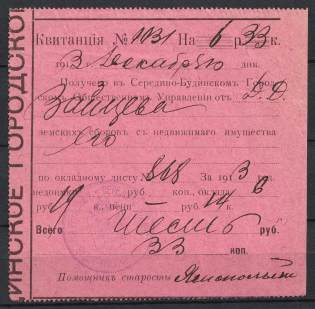 Квитанція № 1131 На 6 р. 33 к.
1913 Декабря 9 дня.
Получено въ Середино-Будинскомъ Город-
скомъ Общественномъ Управленіи отъ В. Д.
Зайцева
земскихъ сборовъ съ недвижимаго имущества
его
по окладному листу № 868 За 1913 годъ
недоимки руб. коп., оклада 6
руб. 19 к. пени руб. 14 к.
Всего Шесть руб.
33 коп.
Помощникъ старосты
ИНСКОЕ ГОРОДСКОЕ